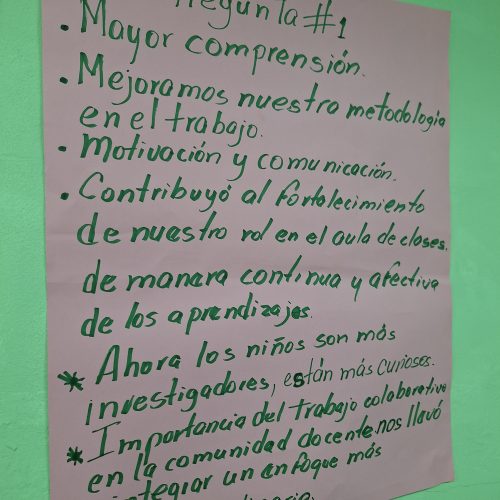 Pregunta #1
• Mayor comprensión.
• Mejoramos nuestra metodología
en el trabajo.
• Motivación y comunicación.
• Contribuyó al fortalecimiento
de nuestro rol en el aula de clases.
de manera continua y afectiva
de los aprendizajes.
* Ahora los niños son más
investigadores, están más curiosos.
* Importancia del trabajo colaborativo
en la comunidad docente.nos llavó
integrar un enfoque más